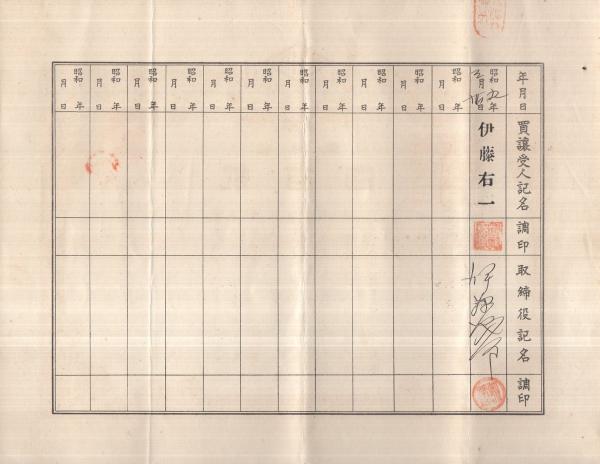 年月日
買讓受人記名
調印
取締役記名
調印
昭和九年
月
日
伊藤右一
昭和 年
月 日
昭和 年
月 日
昭和 年
月 日
昭和 年
月 日
昭和 年
月 日
昭和 年
月 日
昭和 年
月 日
昭和 年
月 日
昭和 年
月 日
昭和 年
月 日
昭和 年
月 日